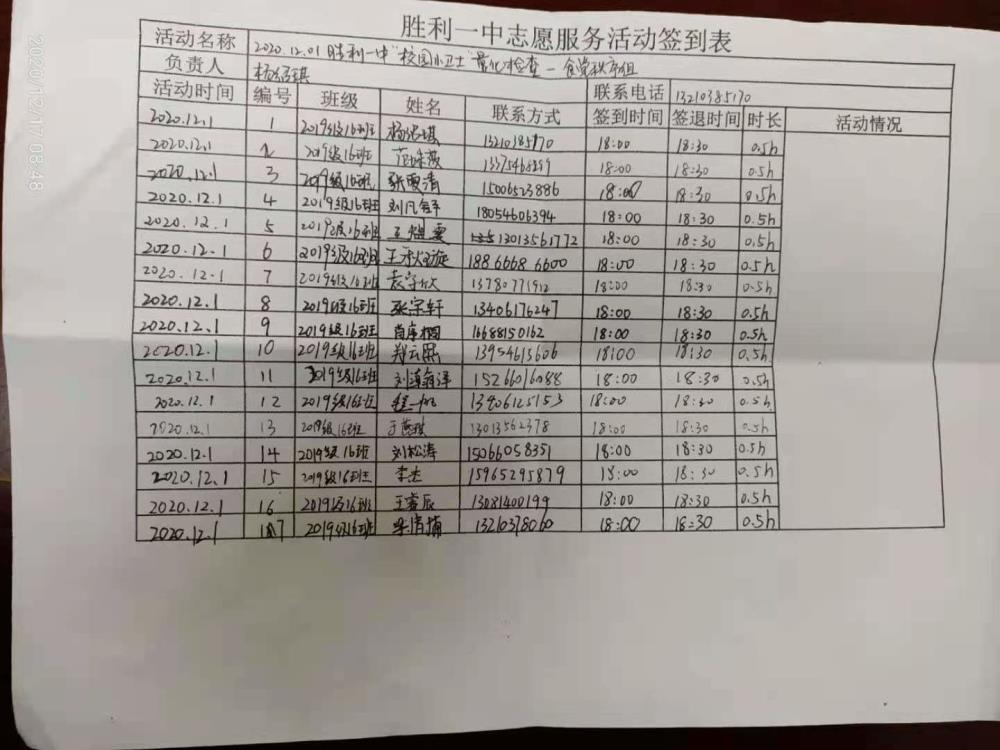 2020/12/17 08:48
胜利一中志愿服务活动签到表
活动名称 2020.12.01 胜利一中"校园小卫士"量化检查－食堂秩序组
负责人 杨绍琪 联系电话 13210385170
活动时间 编号 班级 姓名 联系方式 签到时间 签退时间 时长 活动情况
2020.12.1 1 2019级16班 杨绍琪 13210385170 18:00 18:30 0.5h
2020.12.1 2 2019级16班 18:00 18:30 0.5h
2020.12.1 3 2019级16班 张雯清 15006523886 18:00 18:30 0.5h
2020.12.1 4 2019级16班 18054606394 18:00 18:30 0.5h
2020.12.1 5 2019级16班 13013561772 18:00 18:30 0.5h
2020.12.1 6 2019级16班 18866686600 18:00 18:30 0.5h
2020.12.1 7 2019级16班 袁字欣 13780771912 18:00 18:30 0.5h
2020.12.1 8 2019级16班 张宗轩 13406176247 18:00 18:30 0.5h
2020.12.1 9 2019级16班 16688150162 18:00 18:30 0.5h
2020.12.1 10 2019级16班 郑云熙 13954613606 18:00 18:30 0.5h
2020.12.1 11 2019级16班 15266016088 18:00 18:30 0.5h
2020.12.1 12 2019级16班 程一帆 13406125153 18:00 18:30 0.5h
2020.12.1 13 2019级16班 13013562378 18:00 18:30 0.5h
2020.12.1 14 2019级16班 刘松涛 15066058351 18:00 18:30 0.5h
2020.12.1 15 2019级16班 李杰 15965295879 18:00 18:30 0.5h
2020.12.1 16 2019级16班 王睿辰 13081400199 18:00 18:30 0.5h
2020.12.1 17 2019级16班 13210378060 18:00 18:30 0.5h